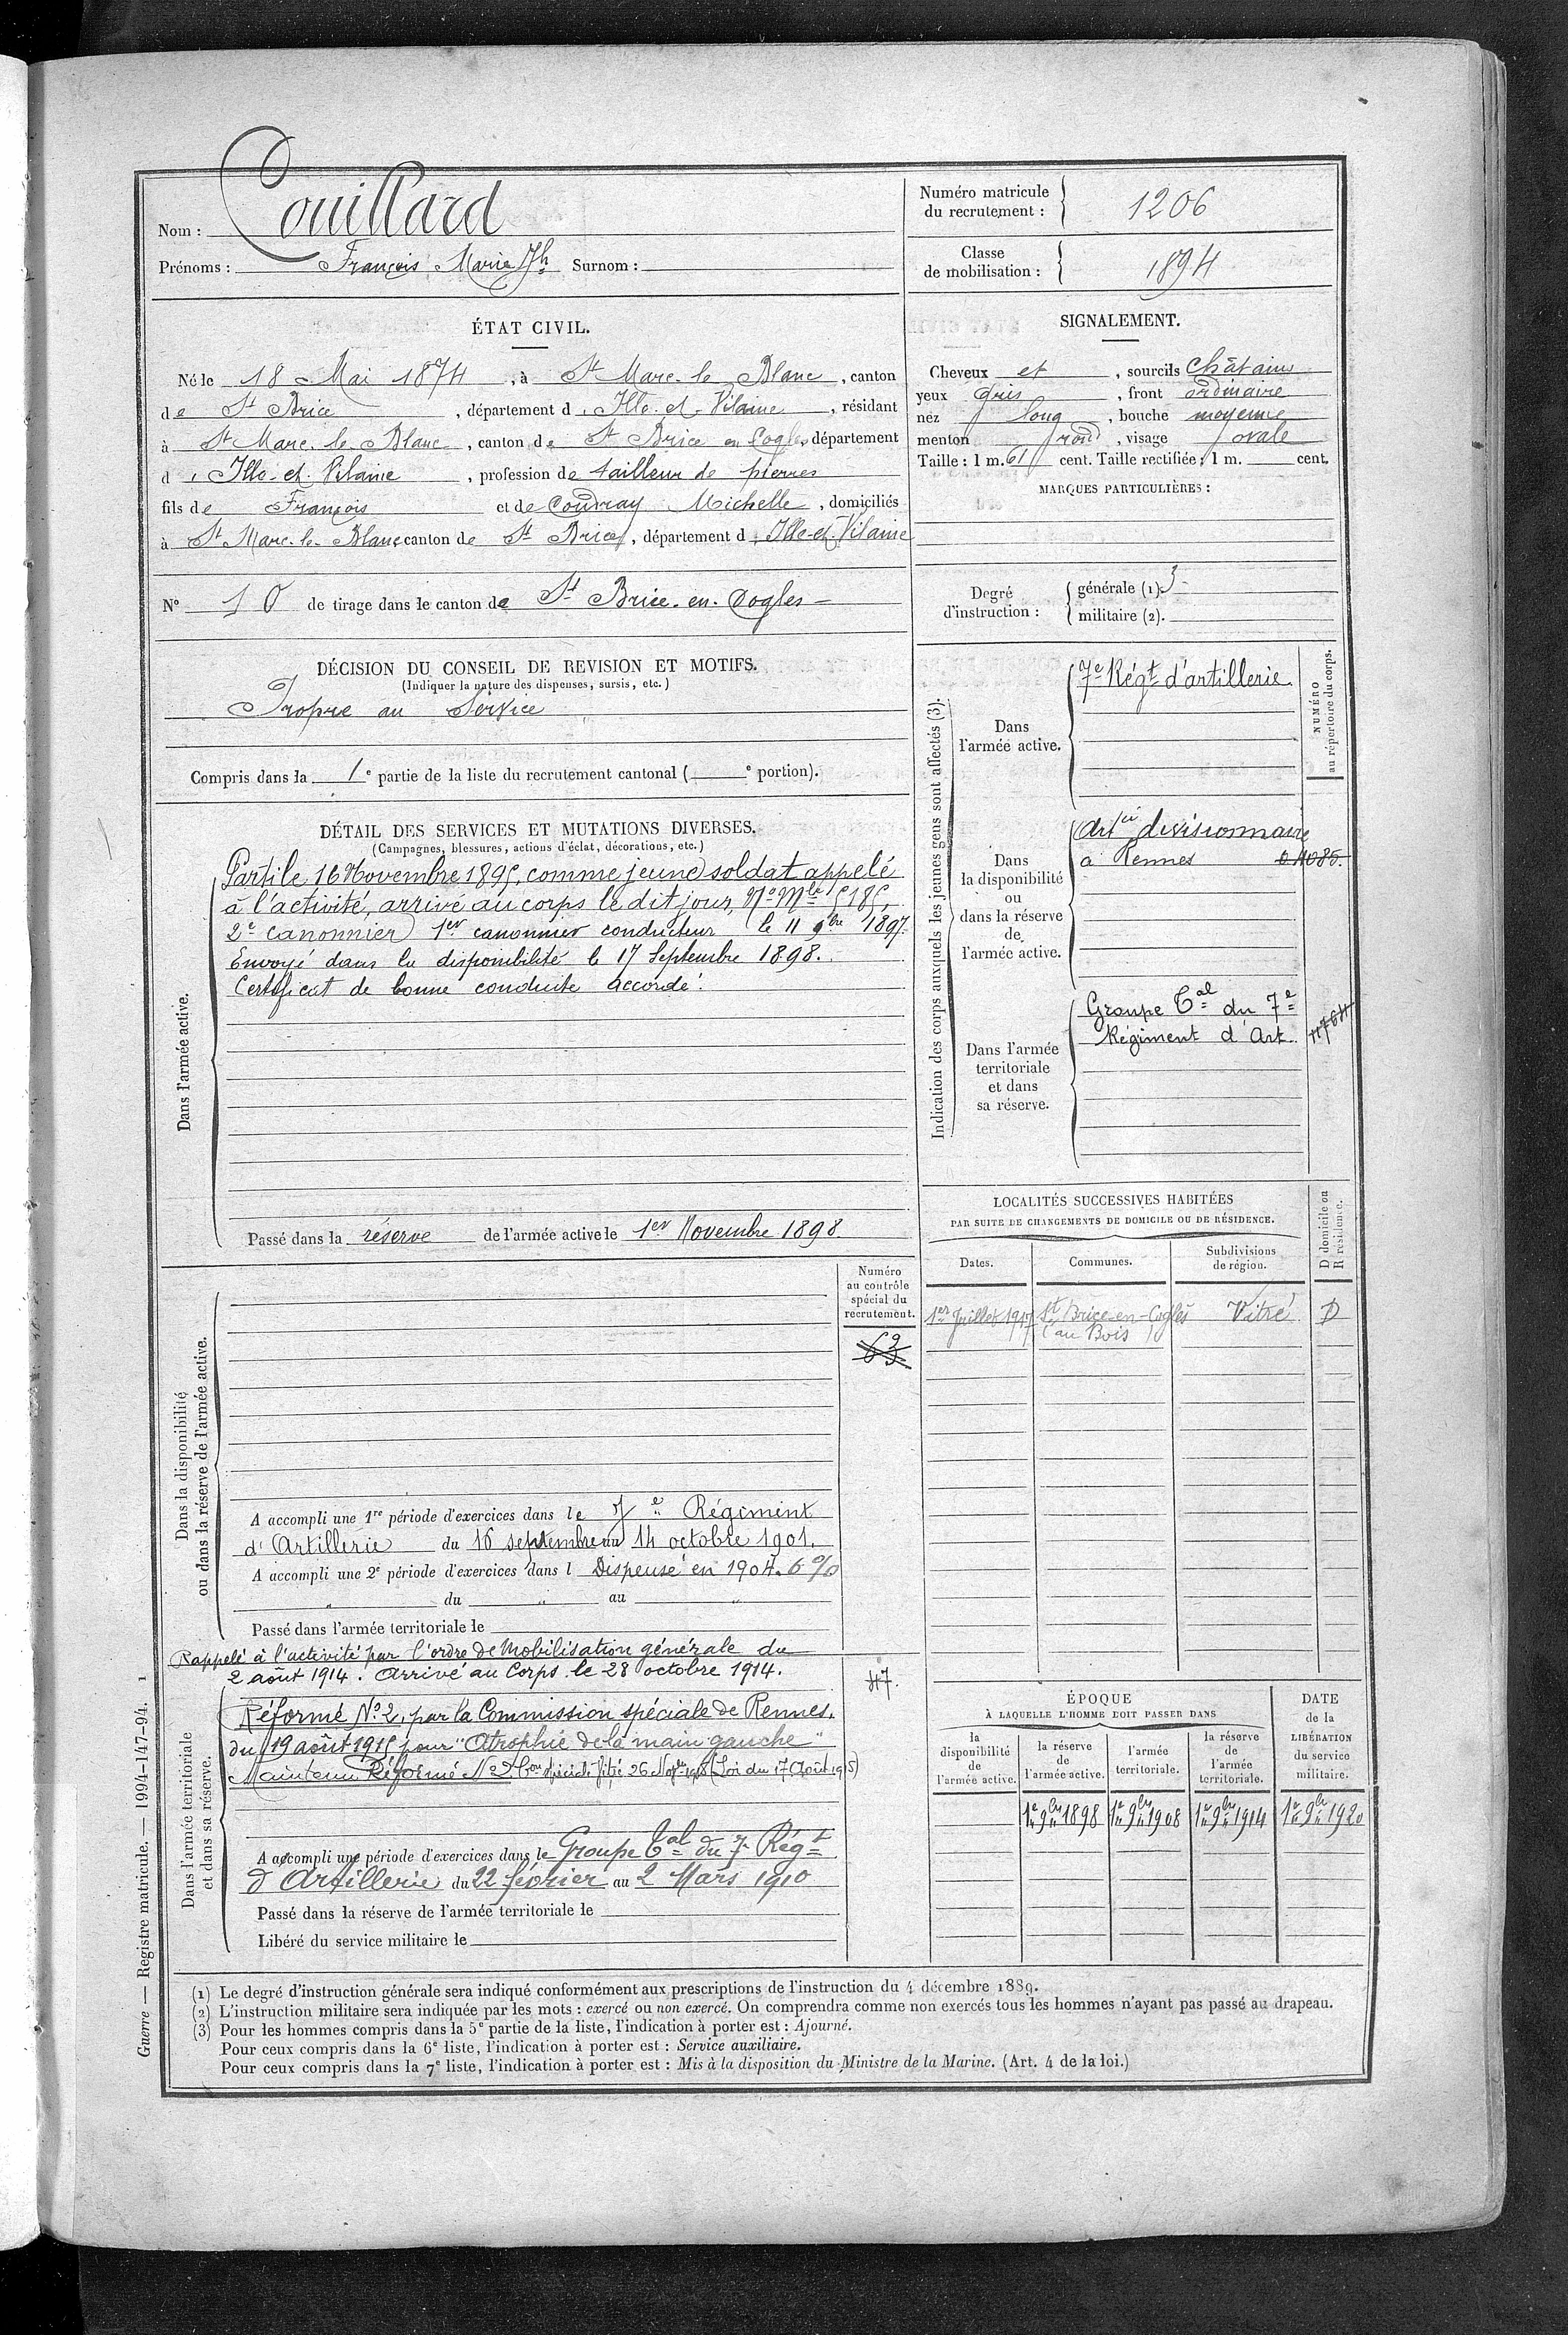 Nom : Couillard
Prénoms : François Marie Jh Surnom :
Numéro matricule
du recrutement : 1206
Classe
de mobilisation : 1894
ÉTAT CIVIL.
Né le 18 Mai 1874, à St Marc-le-Blanc, canton
de St Brice, département d'Ille-et-Vilaine, résidant
à St Marc-le-Blanc, canton de St Brice en Cogles, département
d'Ille-et-Vilaine, profession de tailleur de pierres
fils de François et de Coudray Michelle, domiciliés
à St Marc-le-Blanc canton de St Brice, département d'Ille-et-Vilaine
N° 10 de tirage dans le canton de St Brice-en-Cogles
SIGNALEMENT.
Cheveux et, sourcils châtains
yeux gris, front ordinaire
nez long, bouche moyenne
menton rond, visage ovale
Taille : 1 m. 61 cent. Taille rectifiée : 1 m. cent.
MARQUES PARTICULIÈRES :
Degré
d'instruction :
générale (1). 3
militaire (2).
DÉCISION DU CONSEIL DE REVISION ET MOTIFS.
(Indiquer la nature des dispenses, sursis, etc.)
Propre au Service
Compris dans la 1e partie de la liste du recrutement cantonal ( e portion).
DÉTAIL DES SERVICES ET MUTATIONS DIVERSES.
(Campagnes, blessures, actions d'éclat, décorations, etc.)
Dans l'armée active.
Parti le 16 Novembre 1895, comme jeune soldat appelé
à l'activité, arrivé au corps le dit jour, No Mle 5185,
2e canonnier 1er canonnier conducteur le 11 9bre 1897.
Envoyé dans la disponibilité le 17 Septembre 1898.
Certificat de bonne conduite accordé.
Passé dans la réserve de l'armée active le 1er Novembre 1898
Indication des corps auxquels les jeunes gens sont affectés (3).
NUMÉRO
au répertoire du corps.
Dans
l'armée active.
7e Régt d'artillerie
Dans
la disponibilité
ou
dans la réserve
de
l'armée active.
Artie divisionnaire
à Rennes
Dans l'armée
territoriale
et dans
sa réserve.
Groupe Tal du 7e
Régiment d'Art.
LOCALITÉS SUCCESSIVES HABITÉES
PAR SUITE DE CHANGEMENTS DE DOMICILE OU DE RÉSIDENCE.
D domicile ou
R résidence.
Dates. Communes. Subdivisions
de région.
1er Juillet 1917 St Brice-en-Cogles Vitré D
(au Bois)
Dans la disponibilité
ou dans la réserve de l'armée active.
Numéro
au contrôle
spécial du
recrutement.
63
A accompli une 1re période d'exercices dans le 7e Régiment
d'Artillerie du 16 septembre au 14 octobre 1901.
A accompli une 2e période d'exercices dans l Dispensé en 1904. 6 %
" du " au "
Passé dans l'armée territoriale le
Rappelé à l'activité par l'ordre de Mobilisation générale du
2 août 1914. Arrivé au Corps le 28 octobre 1914.
47.
Dans l'armée territoriale
et dans sa réserve.
Réformé No 2, par la Commission spéciale de Rennes,
du 19 août 1915 pour "Atrophie de la main gauche"
Maintenu Réformé No 2 Con spéciale Vitré 26 Nov 1915 (Loi du 17 Août 1915)
A accompli une période d'exercices dans le Groupe Tal du 7e Régt
d'Artillerie du 22 février au 2 Mars 1910
Passé dans la réserve de l'armée territoriale le
Libéré du service militaire le
ÉPOQUE
À LAQUELLE L'HOMME DOIT PASSER DANS
DATE
de la
LIBÉRATION
du service
militaire.
la
disponibilité
de
l'armée active.
la réserve
de
l'armée active.
l'armée
territoriale.
la réserve
de
l'armée
territoriale.
1er 9bre 1898 1er 9bre 1908 1er 9bre 1914 1er 9bre 1920
(1) Le degré d'instruction générale sera indiqué conformément aux prescriptions de l'instruction du 4 décembre 1889.
(2) L'instruction militaire sera indiquée par les mots : exercé ou non exercé. On comprendra comme non exercés tous les hommes n'ayant pas passé au drapeau.
(3) Pour les hommes compris dans la 5e partie de la liste, l'indication à porter est : Ajourné.
Pour ceux compris dans la 6e liste, l'indication à porter est : Service auxiliaire.
Pour ceux compris dans la 7e liste, l'indication à porter est : Mis à la disposition du Ministre de la Marine. (Art. 4 de la loi.)
Guerre — Registre matricule. — 1994-147-94. 1